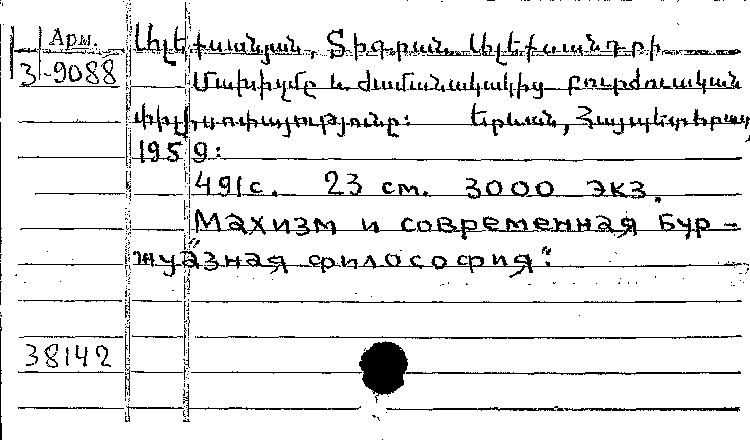 Арм.
3-9088
Ալեքսանյան, Տիգրան Ալեքսանդրի
Մախիզմը և ժամանակակից բուրժուական
փիլիսոփայությունը: Երևան, Հայպետհրատ,
1959:
491 с. 23 см. 3000 экз.
„Махизм и современная бур-
жуазная философия“.
38142